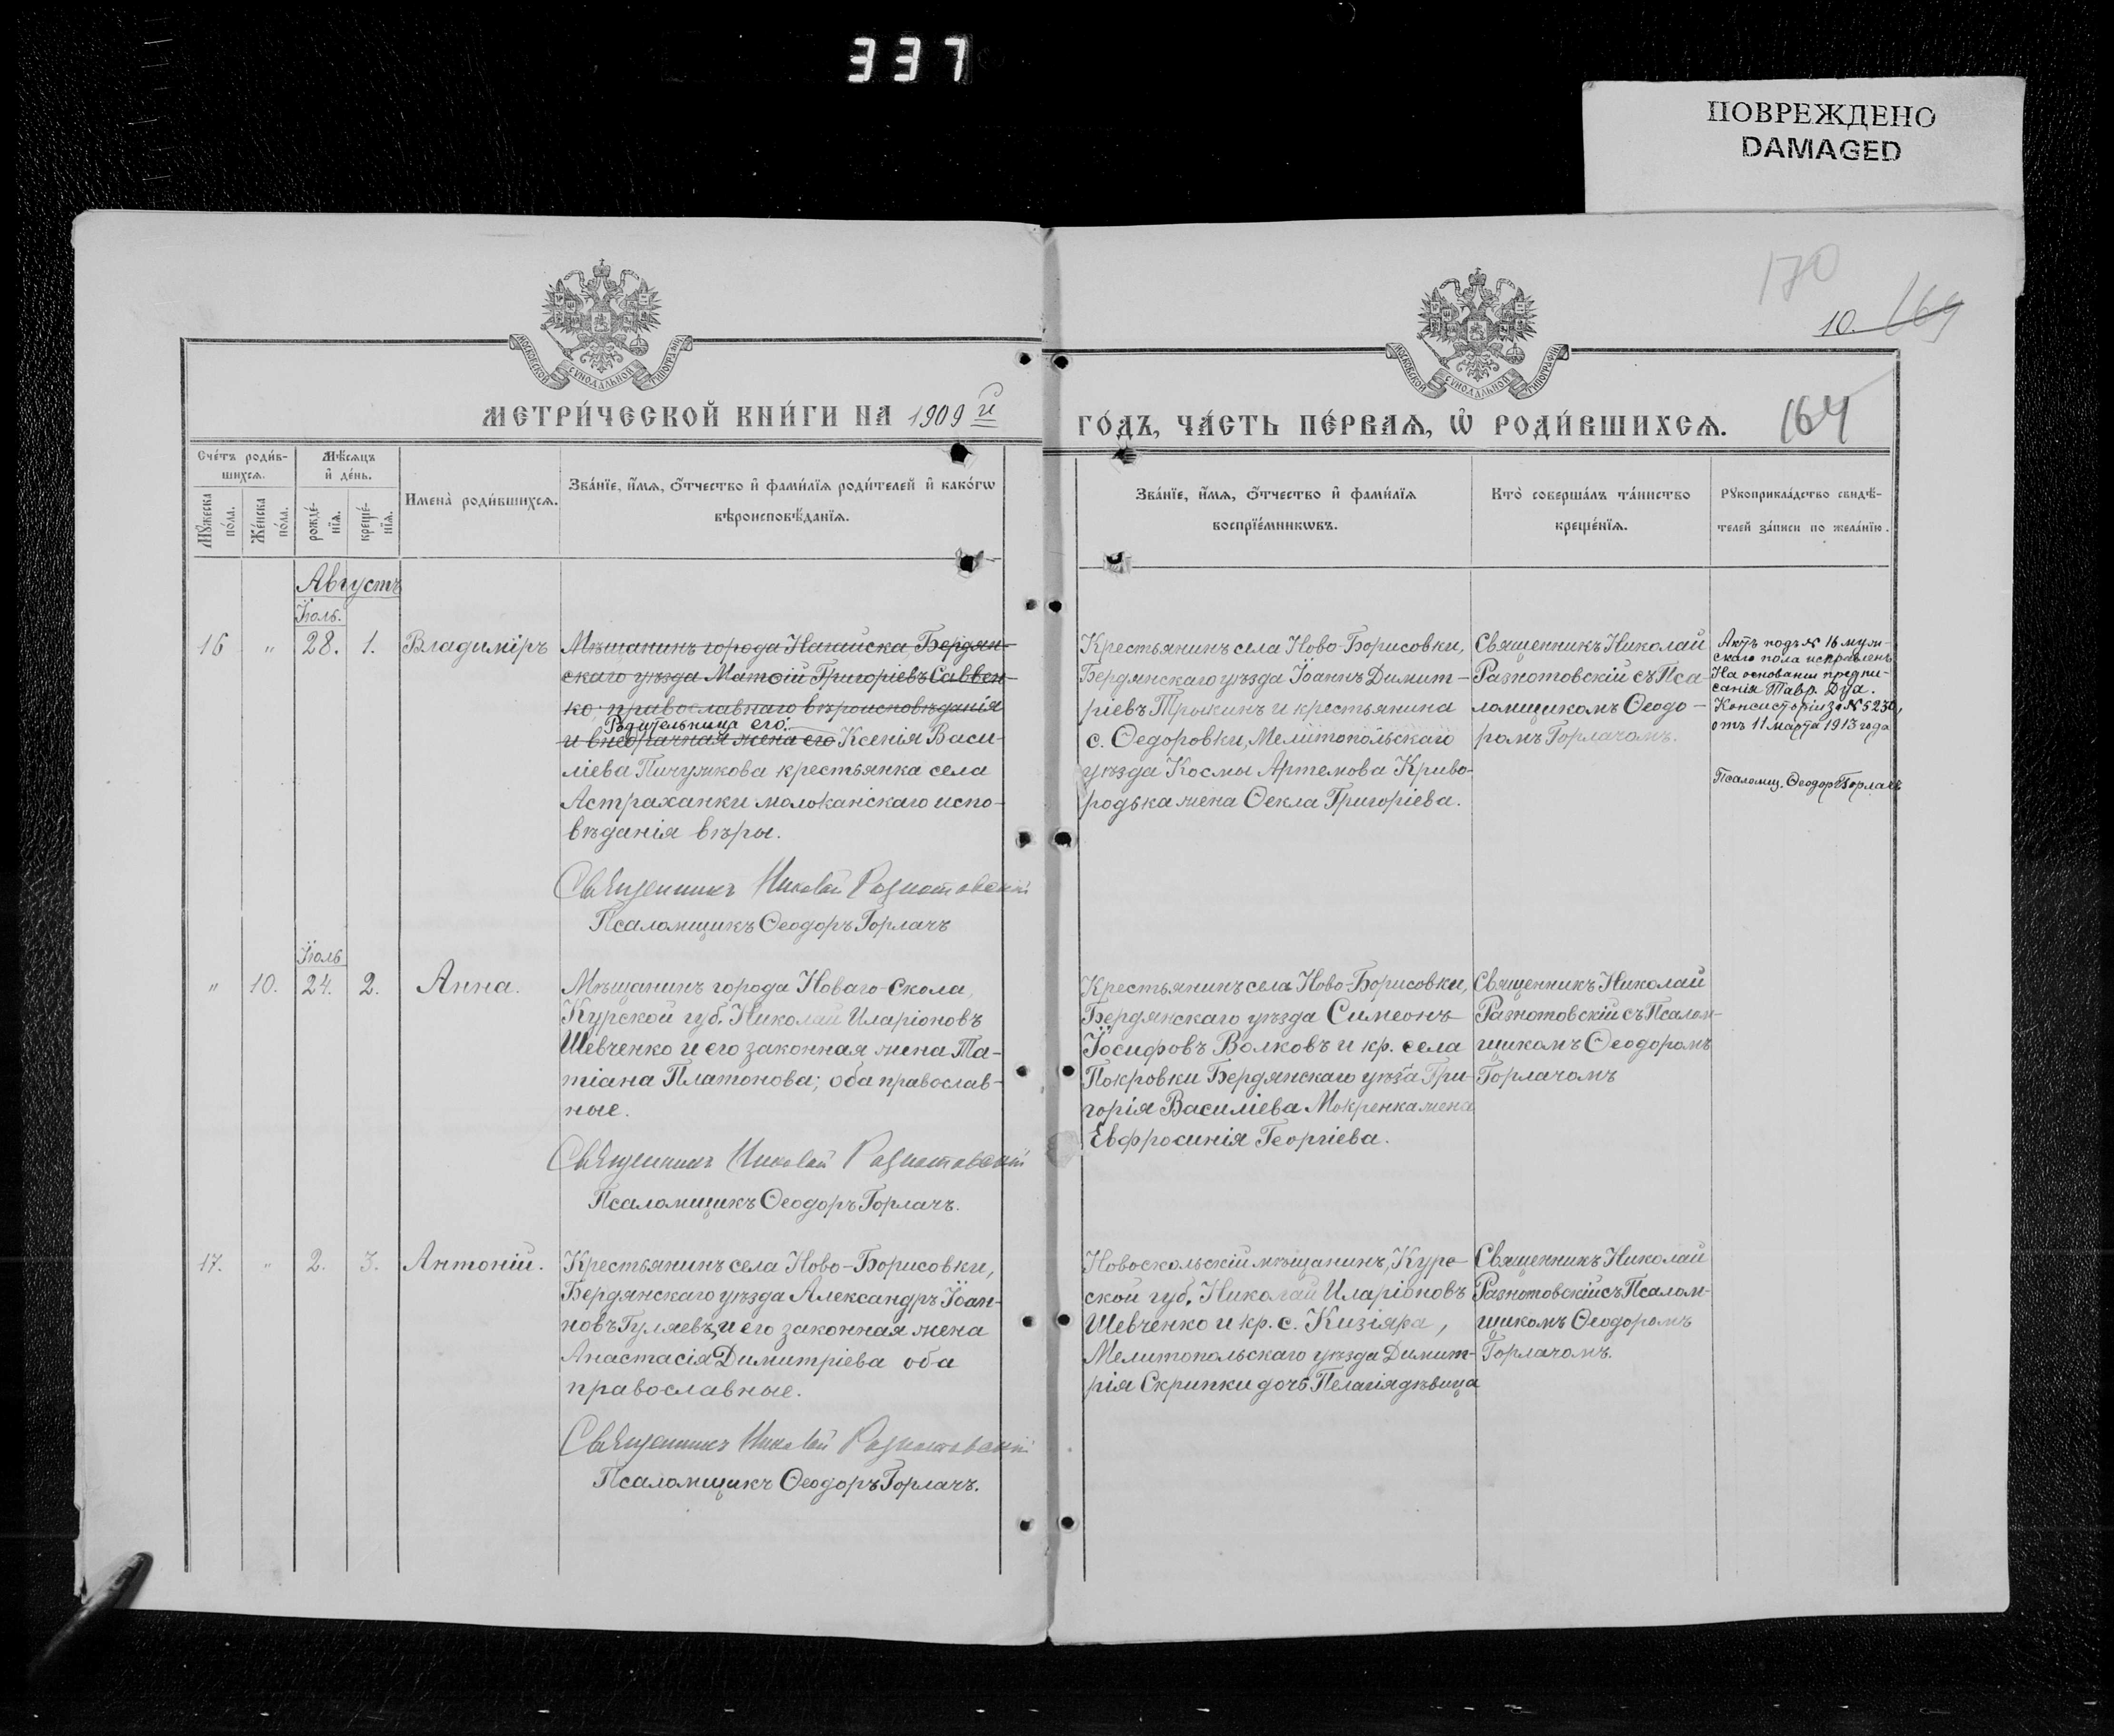 337
ПОВРЕЖДЕНО
DAMAGED
170
10. 169
164
МОСКОВСКОЙ СѴНОДАЛЬНОЙ ТИПОГРАФІИ
МОСКОВСКОЙ СѴНОДАЛЬНОЙ ТИПОГРАФІИ
МЕТРИ́ЧЕСКОЙ КНИ́ГИ НА 1909 й
ГО́ДЪ, ЧА́СТЬ ПЕ́РВАѦ, Ѡ҆ РОДИ́ВШИХСѦ.
Сче́тъ роди́в-
шихсѧ.
Мѣ́сѧцъ
и҆ де́нь.
Мꙋ́жеска по́ла.
Же́нска по́ла.
рожде́-нїѧ.
креще́-нїѧ.
Имена̀ роди́вшихсѧ.
Зва́нїе, и҆́мѧ, ѻ҆́тчество и҆ фами́лїѧ роди́телей и҆ како́гѡ
вѣроисповѣ́данїѧ.
Зва́нїе, и҆́мѧ, ѻ҆́тчество и҆ фами́лїѧ
воспрїе́мникѡвъ.
Кто̀ соверша́лъ та́инство
креще́нїѧ.
Рꙋкоприкла́дство свидѣ́-
телей за́писи по жела́нїю.
Августъ
Іюль.
16 " 28. 1. Владиміръ
Мѣщанинъ города Нагайска Бердян-
скаго уѣзда Матѳій Григоріевъ Саввен-
ко; православнаго вѣроисповѣданія
Родительница его:
и внебрачная жена его Ксенія Васи-
ліева Пичужкова крестьянка села
Астраханки молоканскаго испо-
вѣданія вѣры.
Священникъ Николай Разнотовскій
Псаломщикъ Ѳеодоръ Горлачъ
Крестьянинъ села Ново-Борисовки,
Бердянскаго уѣзда Іоаннъ Димит-
ріевъ Трыкинъ и крестьянина
с. Ѳедоровки, Мелитопольскаго
уѣзда Космы Артемова Криво-
родька жена Ѳекла Григоріева.
Священникъ Николай
Разнотовскій съ Пса-
ломщикомъ Ѳеодо-
ромъ Горлачомъ.
Актъ подъ № 16 муж-
скаго пола исправленъ
На основаніи предпи-
санія Тавр. Дух.
Консисторіи за № 5230,
отъ 11 марта 1913 года
Псаломщ. Ѳеодоръ Горлачъ
Іюль
" 10. 24. 2. Анна.
Мѣщанинъ города Новаго-Скола,
Курской губ. Николай Иларіоновъ
Шевченко и его законная жена Та-
тіана Платонова; оба православ-
ные.
Священникъ Николай Разнотовскій
Псаломщикъ Ѳеодоръ Горлачъ.
Крестьянинъ села Ново-Борисовки,
Бердянскаго уѣзда Симеонъ
Іосифовъ Волковъ и кр. села
Покровки Бердянскаго уѣз-а Гри-
горія Василіева Мокренка жена
Евфросинія Георгіева.
Священникъ Николай
Разнотовскій съ Псалом-
щикомъ Ѳеодоромъ
Горлачомъ
17. " 2. 3. Антоній.
Крестьянинъ села Ново-Борисовки,
Бердянскаго уѣзда Александръ Іоан-
новъ Гуляевъ, и его законная жена
Анастасія Димитріева оба
православные.
Священникъ Николай Разнотовскій
Псаломщикъ Ѳеодоръ Горлачъ.
Новоскольскій мѣщанинъ, Кур-
ской губ. Николай Иларіоновъ
Шевченко и кр. с. Кизіяра,
Мелитопольскаго уѣзда Димит-
рія Скрипки дочь Пелагія дѣвица
Священникъ Николай
Разнотовскій съ Псалом-
щикомъ Ѳеодоромъ
Горлачомъ.